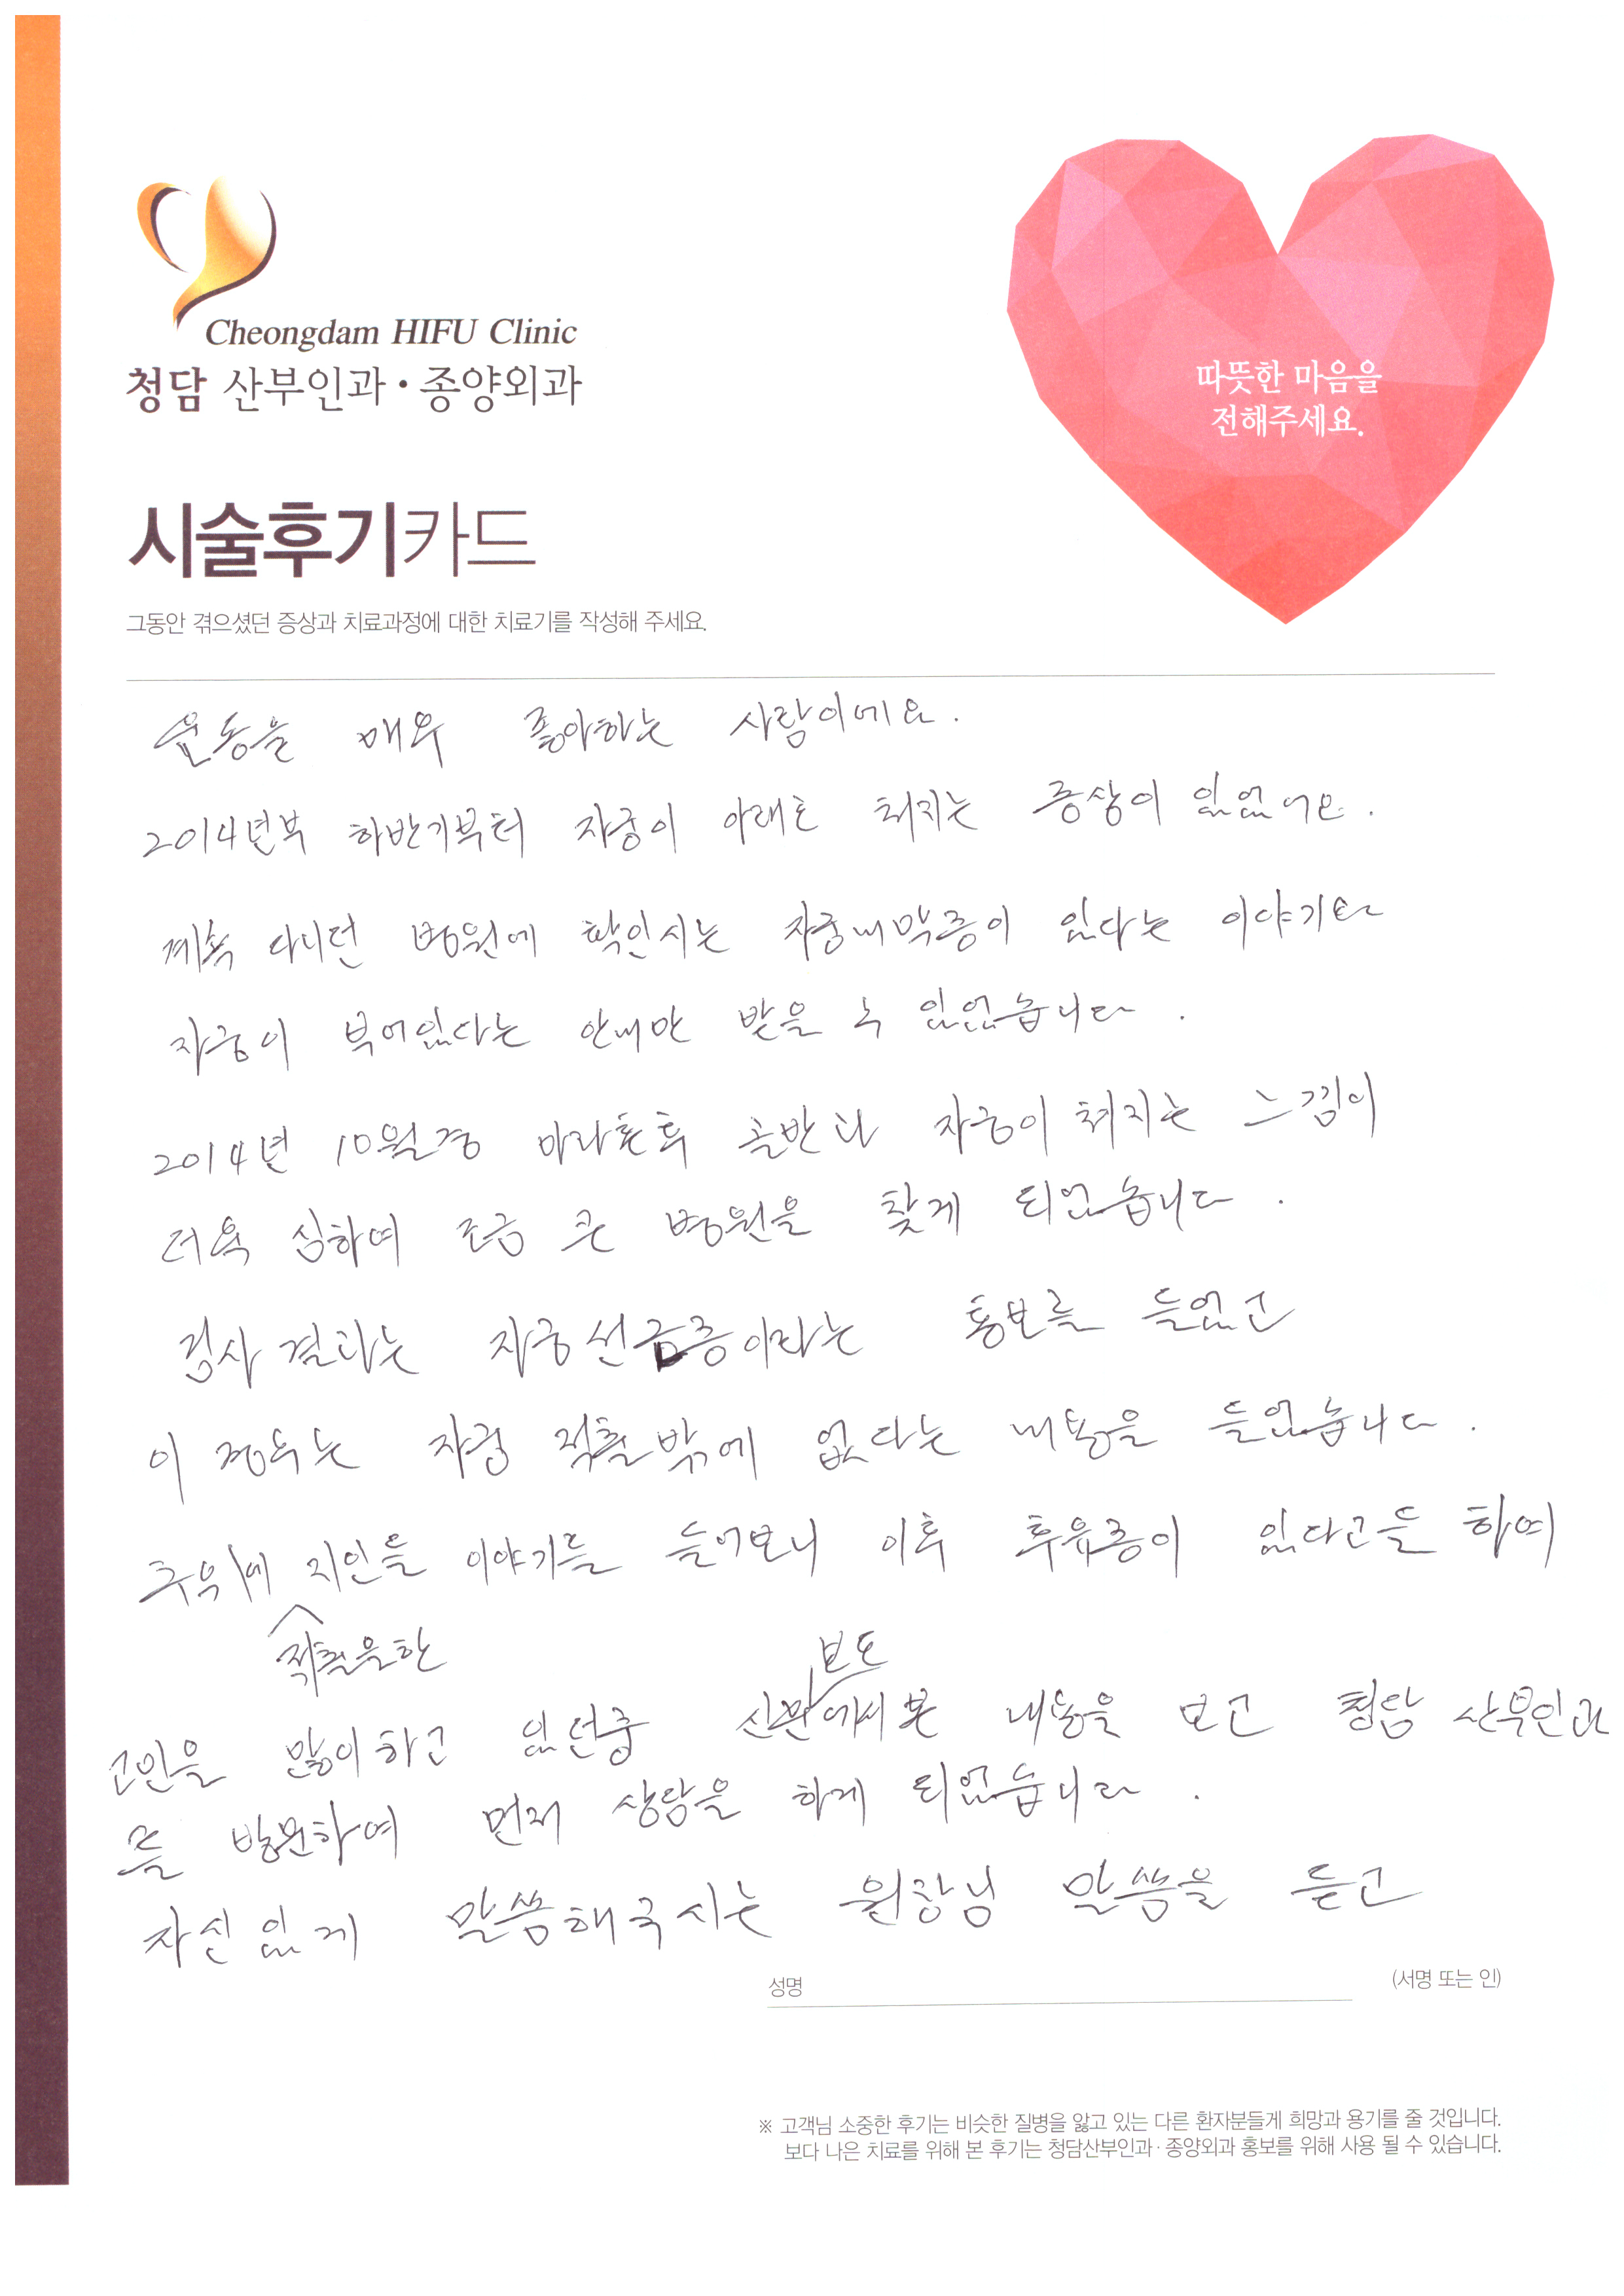 Cheongdam HIFU Clinic
청담 산부인과·종양외과
따뜻한 마음을
전해주세요.
시술후기카드
그동안 겪으셨던 증상과 치료과정에 대한 치료기를 작성해 주세요.
운동을 매우 좋아하는 사람이에요.
2014년부 하반기부터 자궁이 아래로 쳐지는 증상이 있었어요.
계속 다니던 병원에 확인시는 자궁내막증이 있다는 이야기와
자궁이 부어있다는 안내만 받을 수 있었습니다.
2014년 10월경 마라톤후 골반과 자궁이 쳐지는 느낌이
더욱 심하여 조금 큰 병원을 찾게 되었습니다.
검사 결과는 자궁선근증이라는 통보를 들었고
이 정도는 자궁 적출밖에 없다는 내용을 들었습니다.
주위에 지인들 이야기를 들어보니 이후 후유증이 있다고들 하여
적출을한
보도
고민을 많이하고 있던중 신문에서 본 내용을 보고 청담 산부인과
를 방문하여 먼저 상담을 하게 되었습니다.
자신있게 말씀해주시는 원장님 말씀을 듣고
성명
(서명 또는 인)
※ 고객님 소중한 후기는 비슷한 질병을 앓고 있는 다른 환자분들게 희망과 용기를 줄 것입니다.
보다 나은 치료를 위해 본 후기는 청담산부인과·종양외과 홍보를 위해 사용 될 수 있습니다.